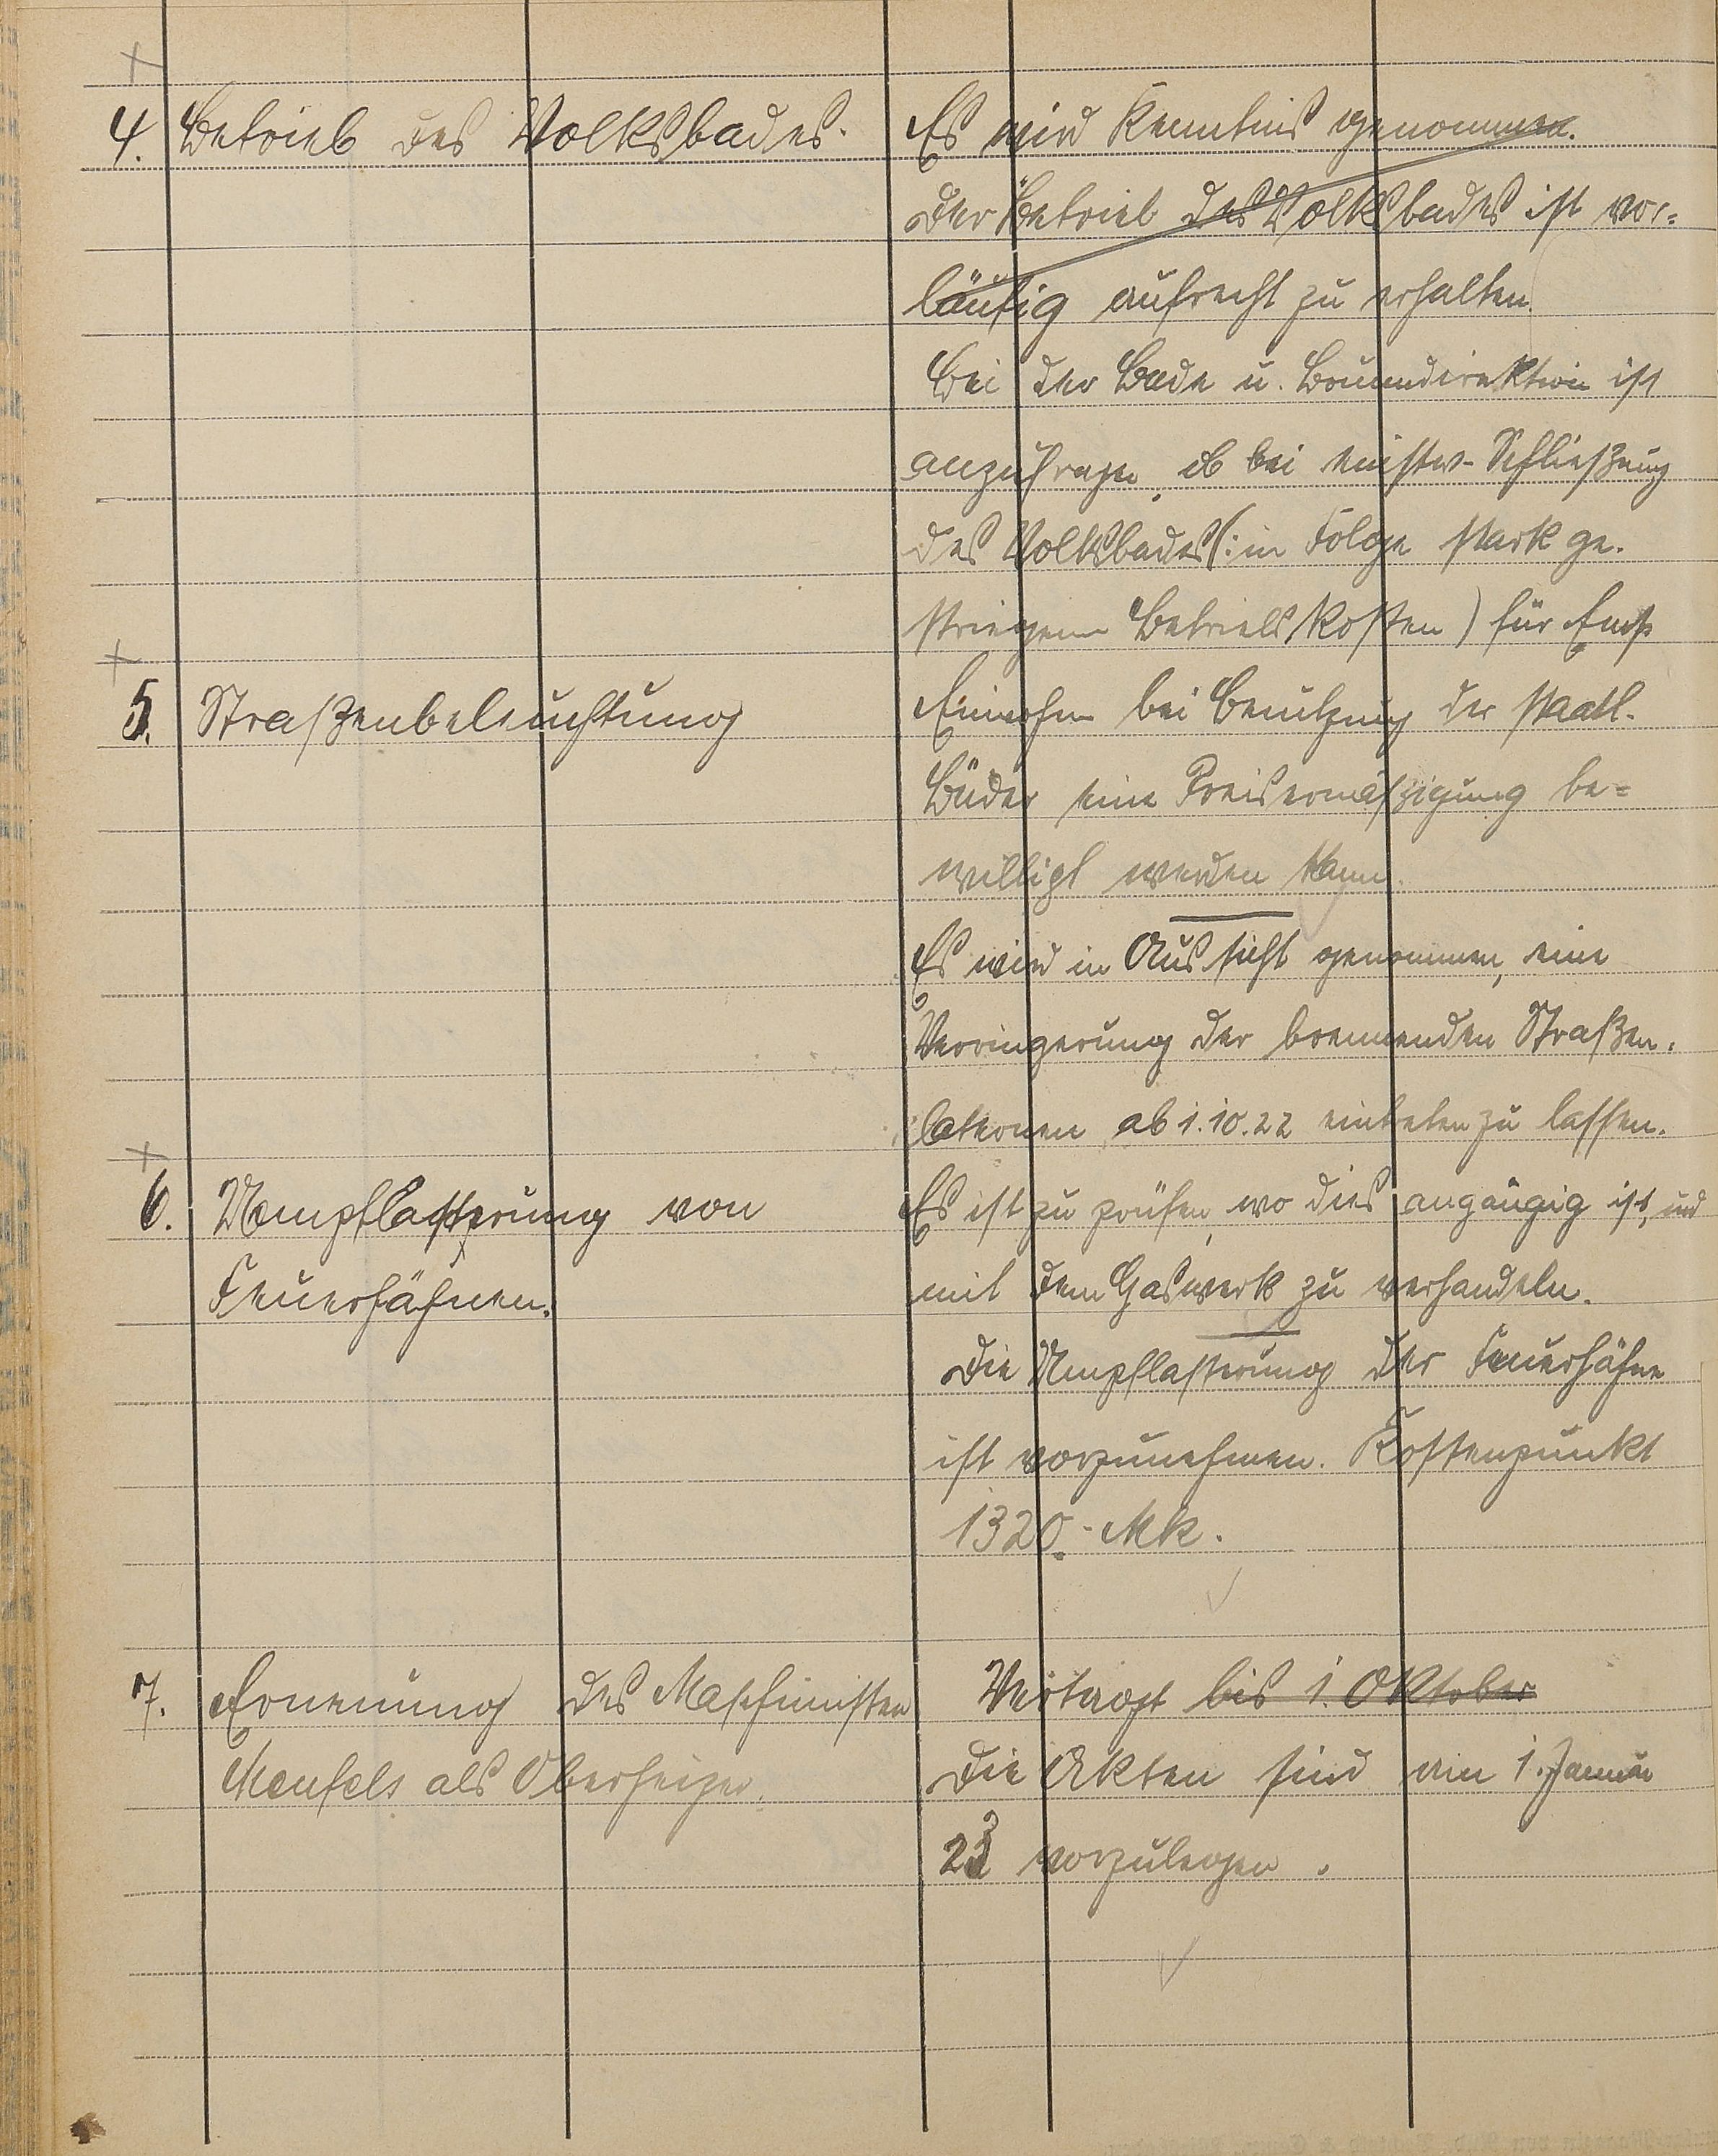 4. Betrieb des Volksbades.
Es wird Kenntnis genommen.
Der Betrieb des Volksbades ist vor=
läufig aufrecht zu erhalten.
Bei der Bade u. Brunnendirektion ist
anzufragen, ob bei einstw. Schließung
des Volksbades (: in Folge stark ge.
stiegenen Betriebskosten) für Emser
5. Straßenbeleuchtung
Einwohner bei Benutzung der staatl.
Bäder eine Preisermäßigung be=
willigt werden kann.
Es wird in Aussicht genommen, eine
Verringerung der brennenden Straßen.
laternen ab 1.10.22 eintreten zu lassen.
6. Umpflasterung von
Feuerhähnen.
Es ist zu prüfen, wo dies angängig ist, und
mit dem Gaswerk zu verhandeln.
Die Umpflasterung der Feuerhähne
ist vorzunehmen. Kostenpunkt
1320.- Mk.
7. Ernennung des Maschinisten
Menfels als Oberheizer.
Vertagt bis 1. Oktober
Die Akten sind am 1. Januar
23 vorzulegen.